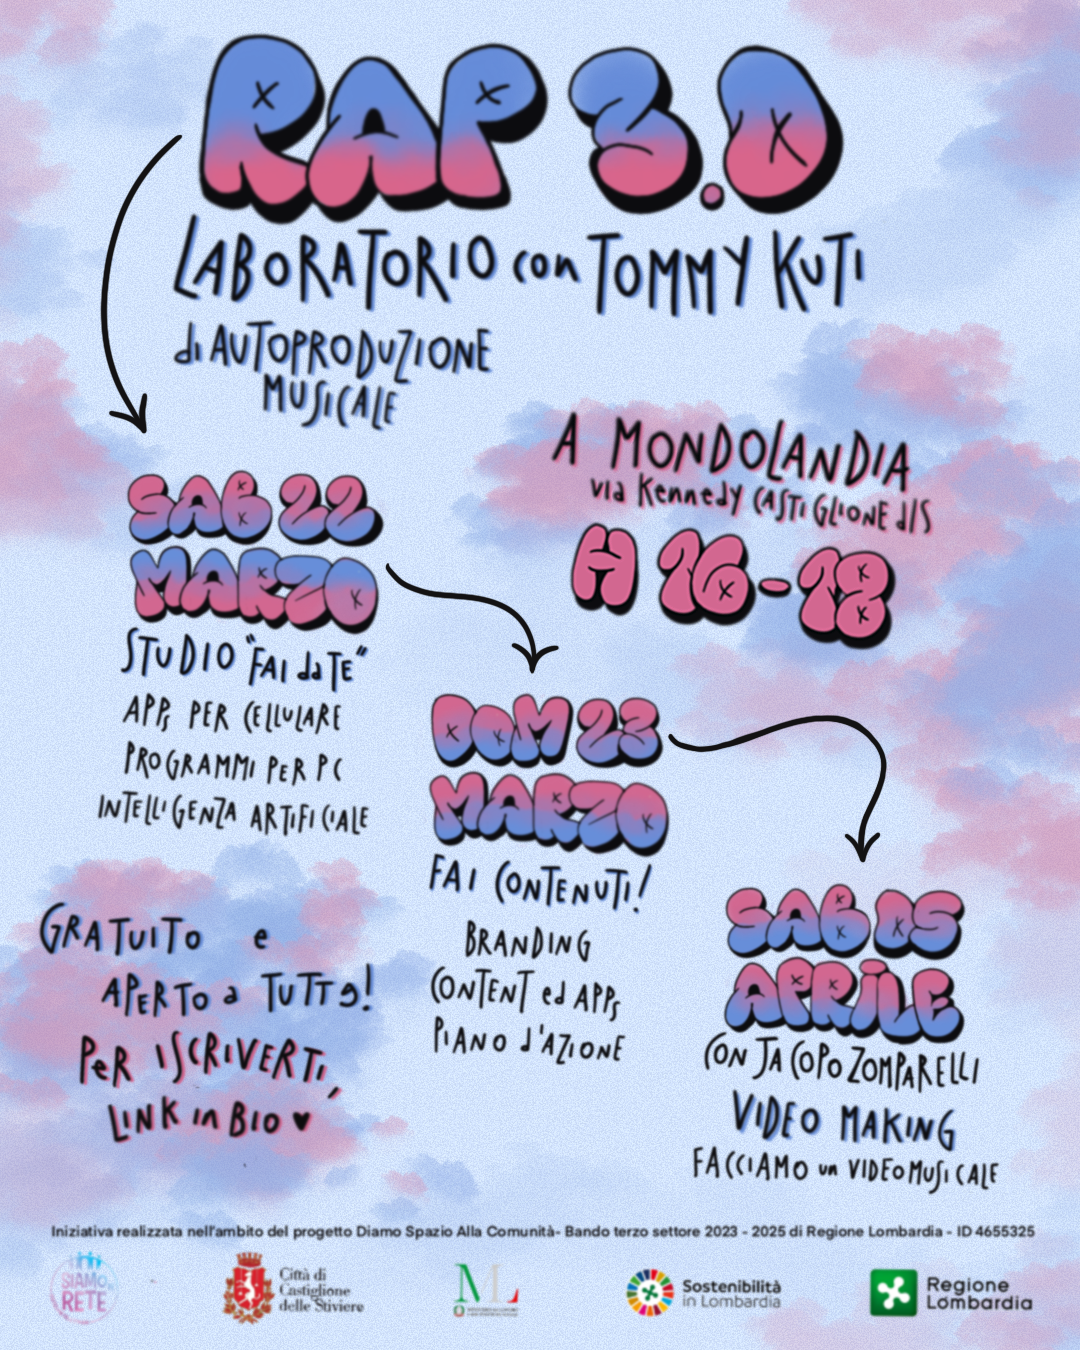 RAP 3.0
LABORATORIO con TOMMY KUTI
di AUTOPRODUZIONE
MUSICALE
A MONDOLANDIA
via Kennedy CASTIGLIONE d/S
H 16-18
SAB 22
MARZO
STUDIO "FAI da TE"
APPs PER CELLULARE
PROGRAMMI PER PC
INTELLIGENZA ARTIFICIALE
DOM 23
MARZO
FAI CONTENUTI!
BRANDING
CONTENT ed APPs
PIANO d'AZIONE
SAB 05
APRILE
CON JACOPO ZOMPARELLI
VIDEO MAKING
FACCIAMO un VIDEOMUSICALE
GRATUITO e
APERTO a TUTTə!
PER ISCRIVERTI,
LINK in BIO ♥
Iniziativa realizzata nell'ambito del progetto Diamo Spazio Alla Comunità- Bando terzo settore 2023 - 2025 di Regione Lombardia - ID 4655325
SIAMO
RETE
Città di
Castiglione
delle Stiviere
ML
Sostenibilità
in Lombardia
Regione
Lombardia